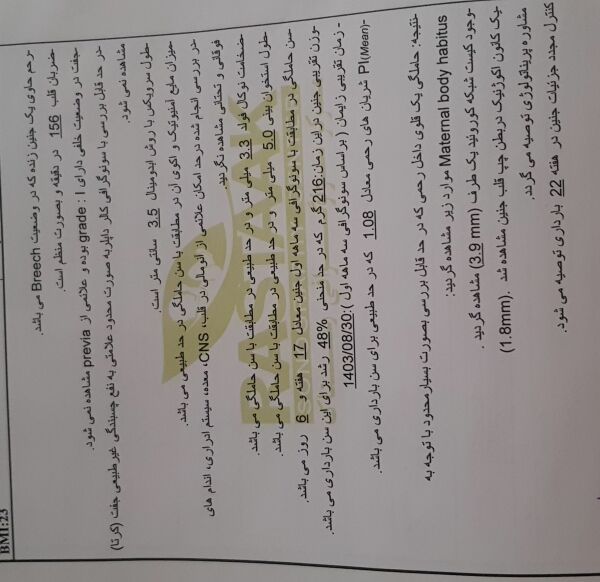 BMI:23
-رحم حاوی یک جنین زنده که در وضعیت Breech می باشد.
-ضربان قلب 156 در دقیقه و بصورت منظم است.
-جفت در وضعیت خلفی دارای grade : I بوده و علائمی از previa مشاهده نمی شود.
در حد قابل بررسی با سونوگرافی کالر داپلر به صورت محدود علامتی به نفع چسبندگی غیر طبیعی جفت (کرتا)
مشاهده نمی شود.
-طول سرویکس با روش ابدومینال 3.5 سانتی متر است.
-میزان مایع آمنیوتیک و اکوی آن در مطابقت با سن حاملگی در حد طبیعی می باشد.
-در بررسی انجام شده در حد امکان علائمی از آنومالی در قلب، CNS، معده، سیستم ادراری، اندام های
فوقانی و تحتانی مشاهده نگردید.
-ضخامت نوکال فولد 3.3 میلی متر و در حد طبیعی در مطابقت با سن حاملگی می باشد.
-طول استخوان بینی 5.0 میلی متر و در حد طبیعی در مطابقت با سن حاملگی می باشد.
-سن حاملگی در مطابقت با سونوگرافی سه ماهه اول جنین معادل 17 هفته و 6 روز می باشد.
-وزن تقریبی جنین در این زمان:216 گرم که در حد منحنی 48% رشد برای این سن بارداری می باشد.
- زمان تقریبی زایمان (بر اساس سونوگرافی سه ماهه اول):1403/08/30
-PI(Mean) شریان های رحمی معادل 1.08 که در حد طبیعی برای سن بارداری می باشد.
نتیجه: حاملگی یک قلوی داخل رحمی که در حد قابل بررسی بصورت بسیار محدود با توجه به
Maternal body habitus موارد زیر مشاهده گردید:
-وجود کیست شبکه کوروئید یک طرف (3.9 mm) مشاهده گردید.
-یک کانون اکوژنیک در بطن چپ قلب جنین مشاهده شد .(1.8mm)
مشاوره پریناتولوژی توصیه می گردد.
کنترل مجدد جزئیات جنین در هفته 22 بارداری توصیه می شود.